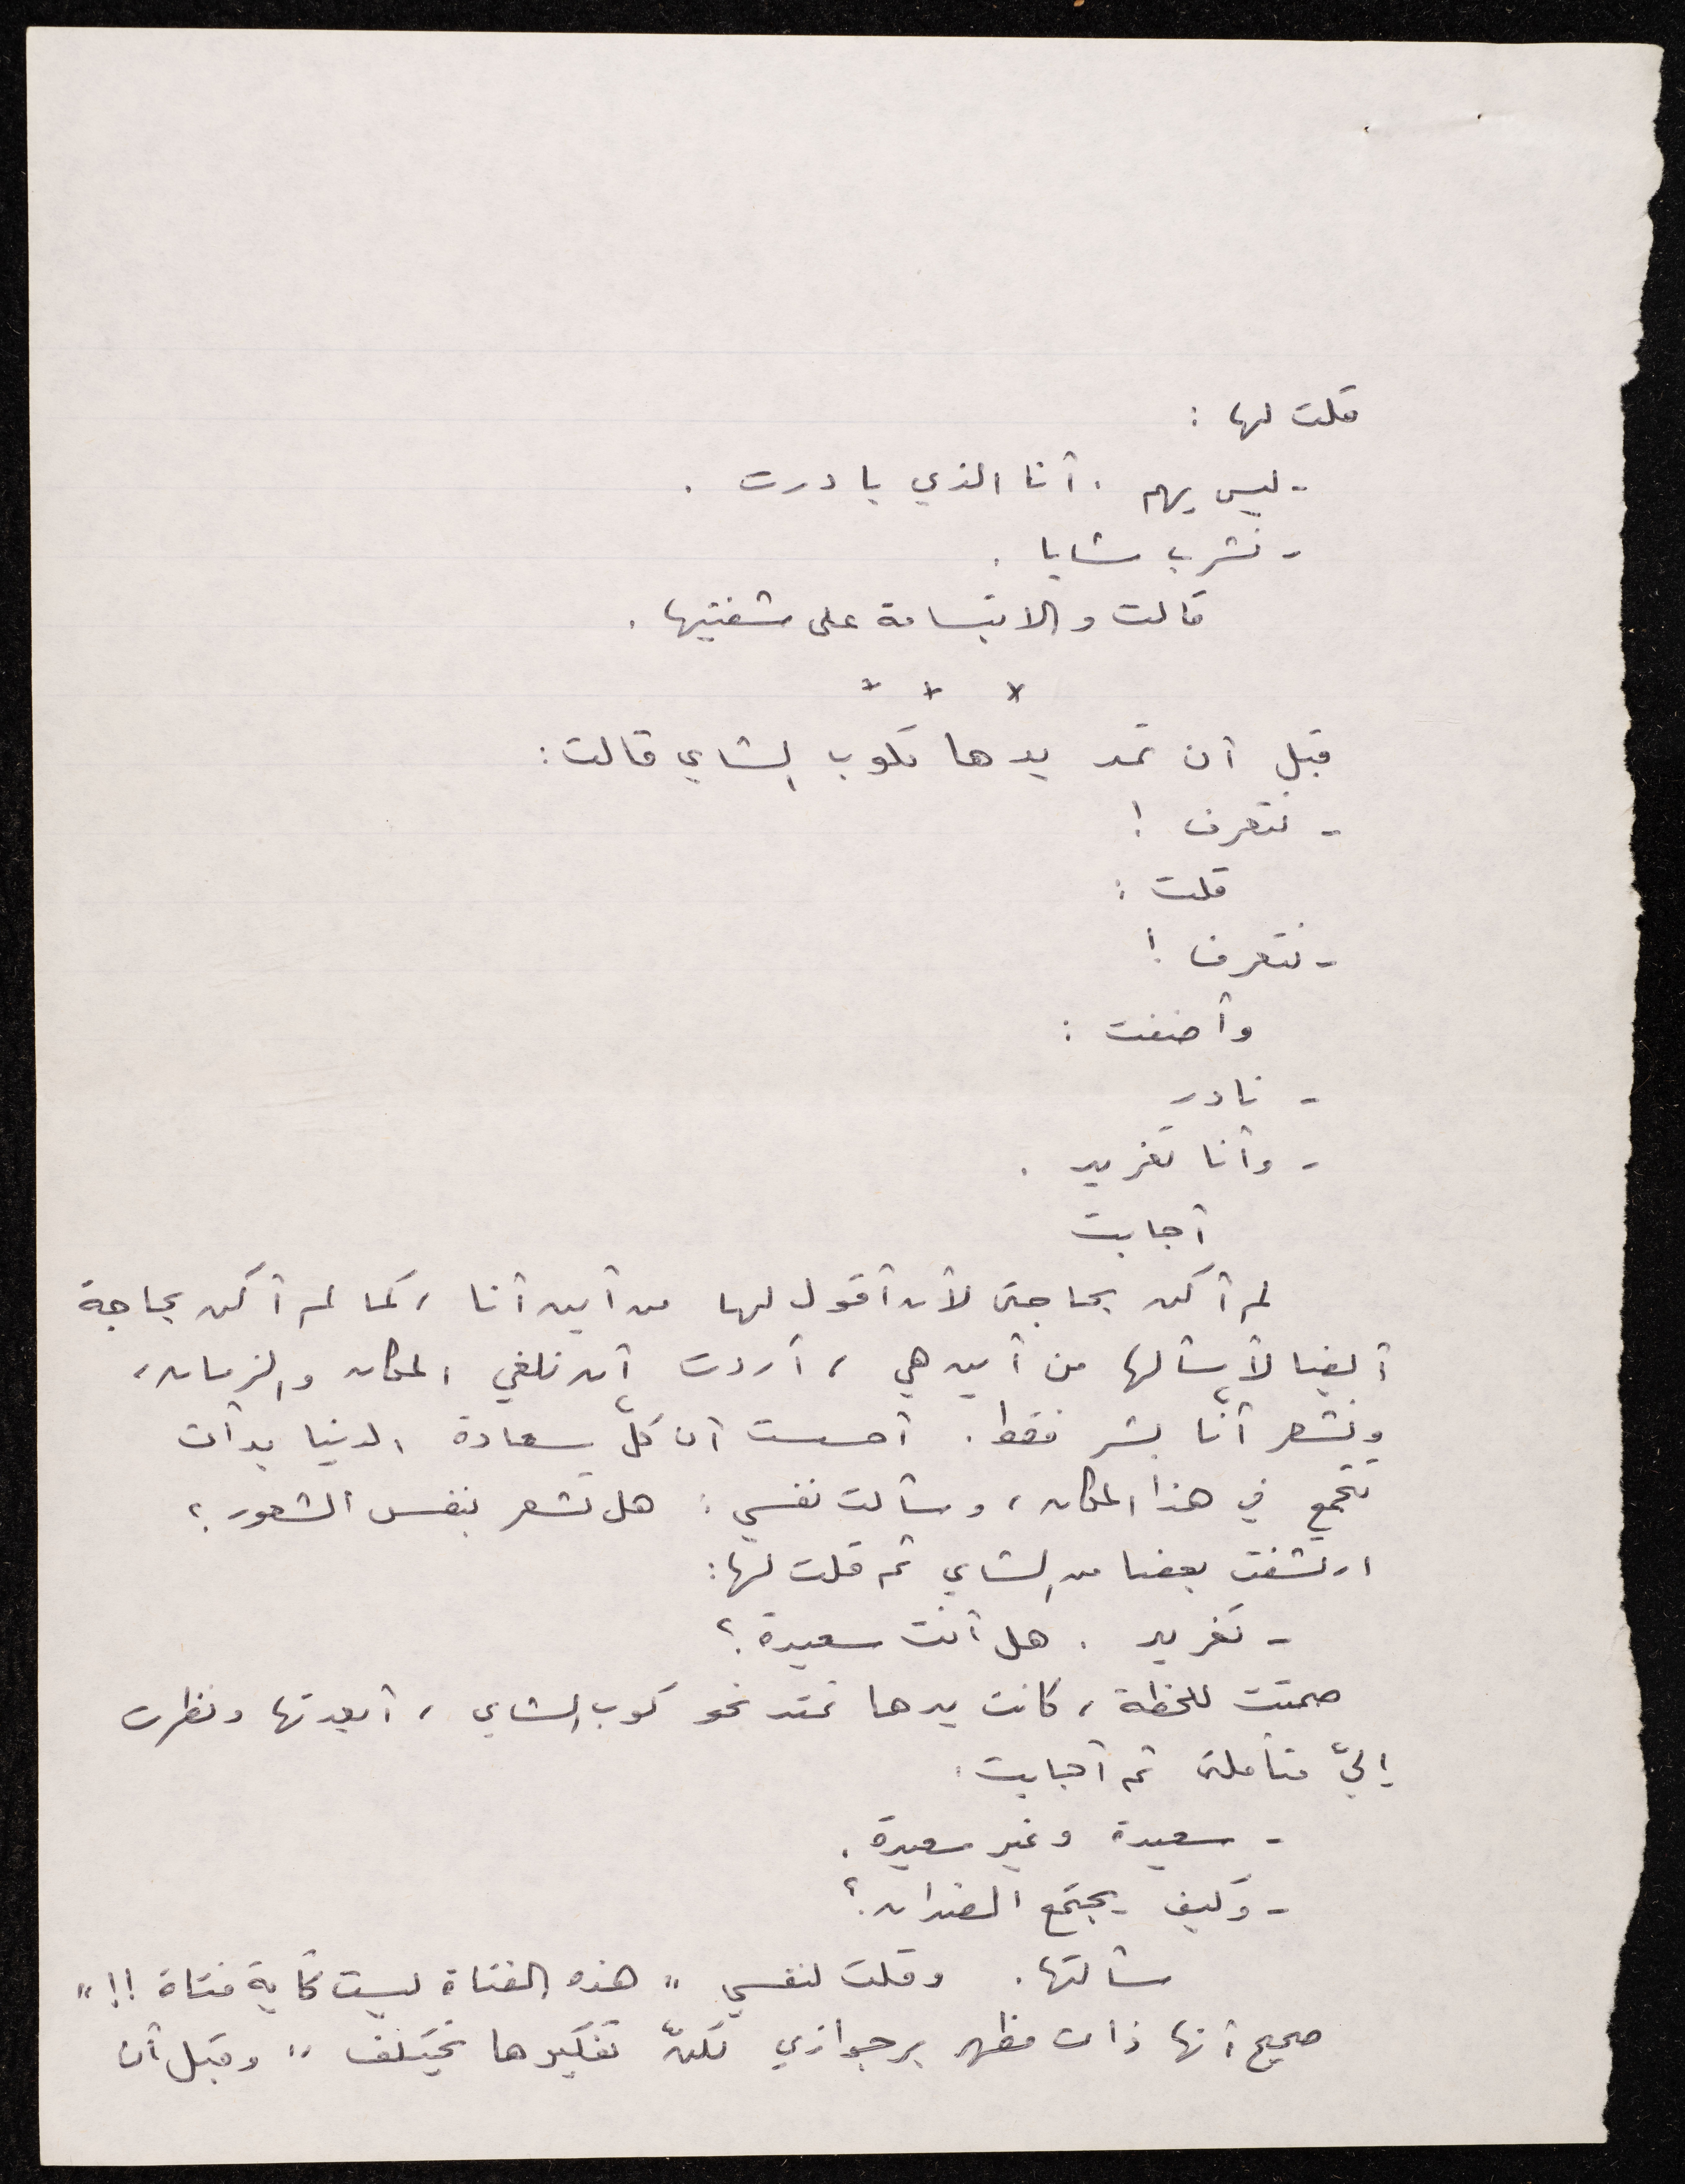 قلت لها :
- ليس يهم . أنا الذي بادرت .
- نشرب شايا .
قالت والابتسامة على شفتيها .
* * *
قبل أن تمد يدها لكوب الشاي قالت :
- نتعرف !
قلت :
- نتعرف !
وأضفت :
- نادر
- وأنا تغريد .
أجابت
لم أكن بحاجة لأن أقول لها من أين أنا ، كما لم أكن بحاجة
أيضا لأسألها من أين هي ، أردت أن نلغي المكان والزمان ،
ونشعر أنّا بشر فقط . أحسست أن كلّ سعادة الدنيا بدأت
تتجمع في هذا المكان ، وسألت نفسي : هل تشعر بنفس الشعور ؟
ارتشفت بعضا من الشاي ثم قلت لها :
- تغريد . هل أنت سعيدة ؟
صمتت للحظة ، كانت يدها تمتد نحو كوب الشاي ، أبعدتها ونظرت
إليّ متأملة ثم أجابت :
- سعيدة وغير سعيدة .
- وكيف يجتمع الضدان ؟
سألتها . وقلت لنفسي " هذه الفتاة ليست كأية فتاة !! "
صحيح أنها ذات مظهر برجوازي لكنّ تفكيرها يختلف " وقبل أن